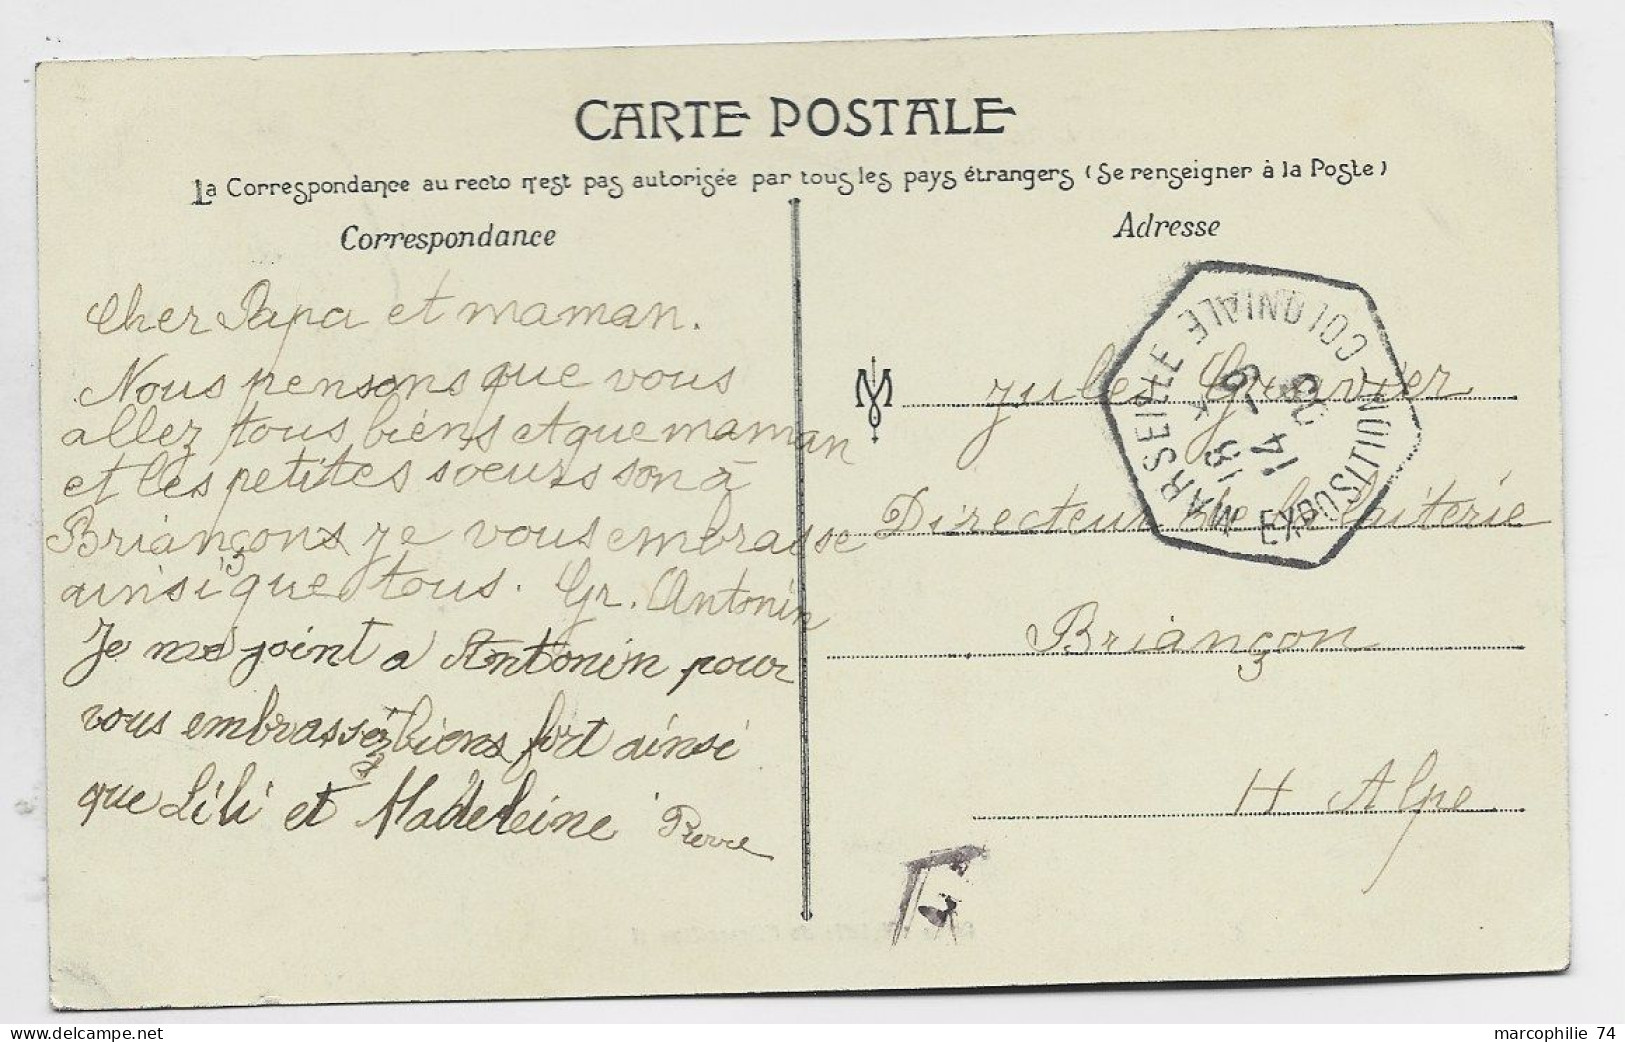 CARTE POSTALE
La Correspondance au recto n'est pas autorisée par tous les pays étrangers (Se renseigner à la Poste)
Correspondance
Cher Papa et maman.
Nous pensons que vous
allez tous biens et que maman
et les petites soeurs son à
Briançons je vous embrasse
ainsi que tous. Gr. Antonin
Je me joint a Antonin pour
vous embrasser biens fort ainsi
que Lili et Madeleine Pierre
Adresse
MARSEILLE COLONIALE EXPOSITION
18 K
14
06
Jules
Directeur
Briançon
H Alpe
T
marcophilie 74